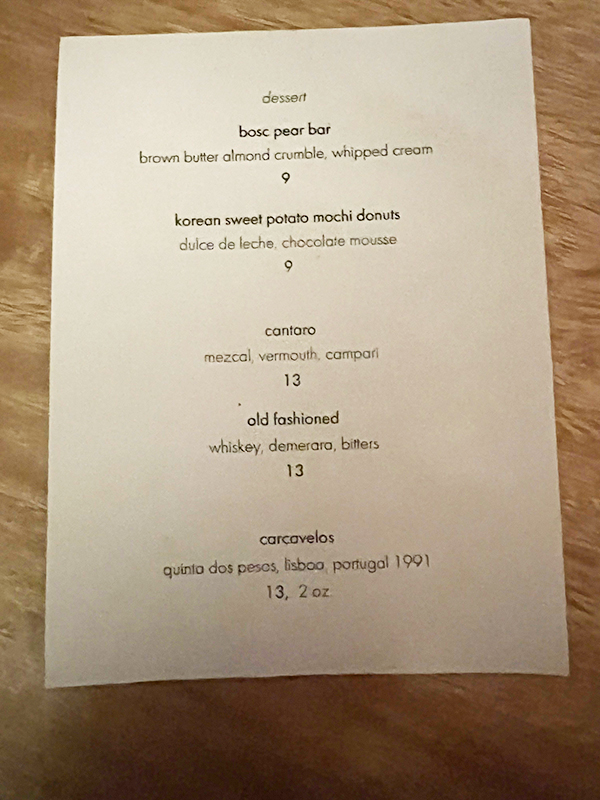 dessert
bosc pear bar
brown butter almond crumble, whipped cream
9
korean sweet potato mochi donuts
dulce de leche, chocolate mousse
9
cantaro
mezcal, vermouth, campari
13
old fashioned
whiskey, demerara, bitters
13
carcavelos
quinta dos pesos, lisboa, portugal 1991
13, 2 oz